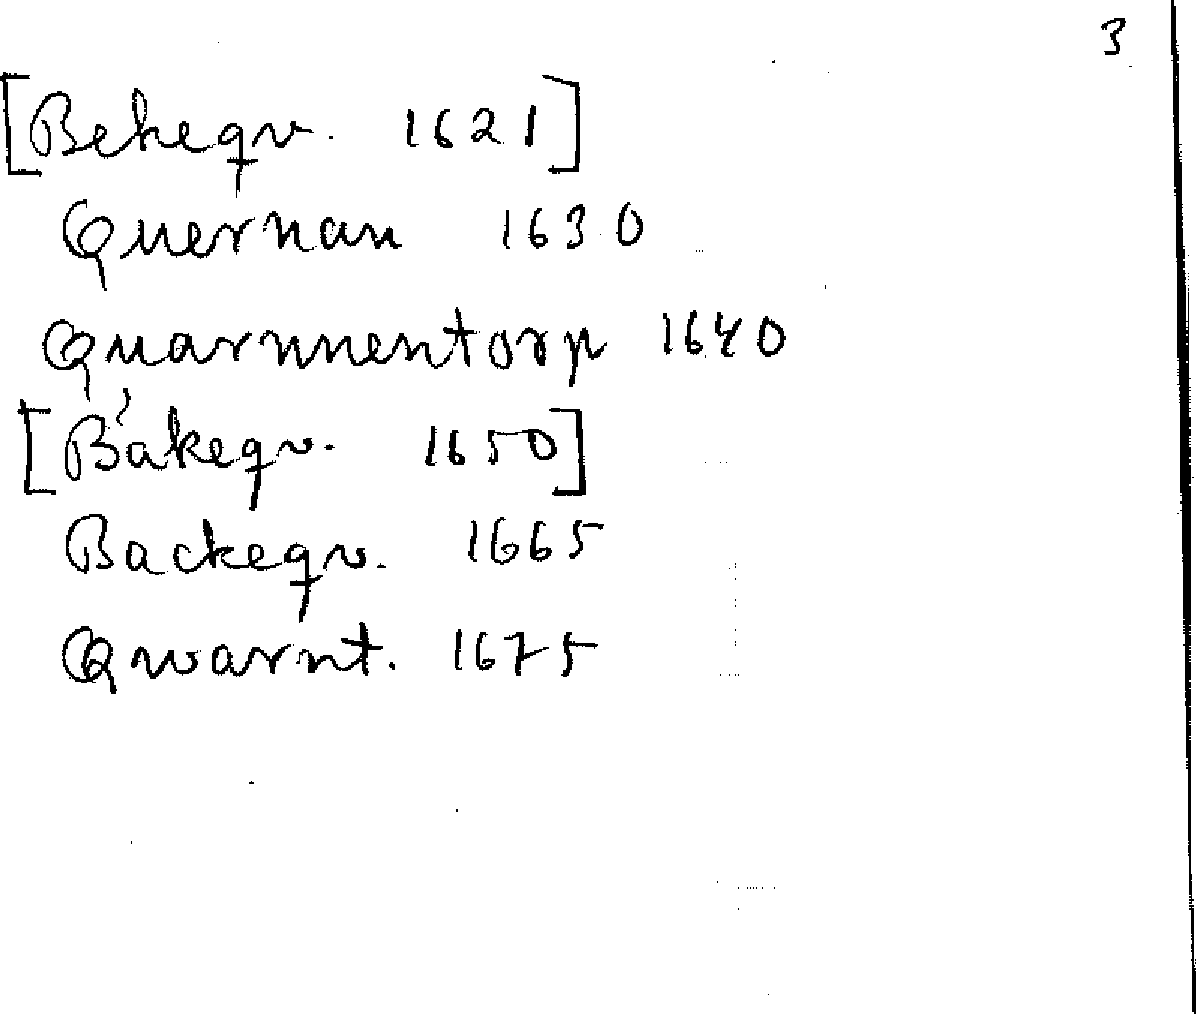 3
[Bekeqv. 1621]
Quernan 1630
Quarnnentorp 1640
[Bakeqv. 1650]
Backeqv. 1665
Qwarnt. 1675